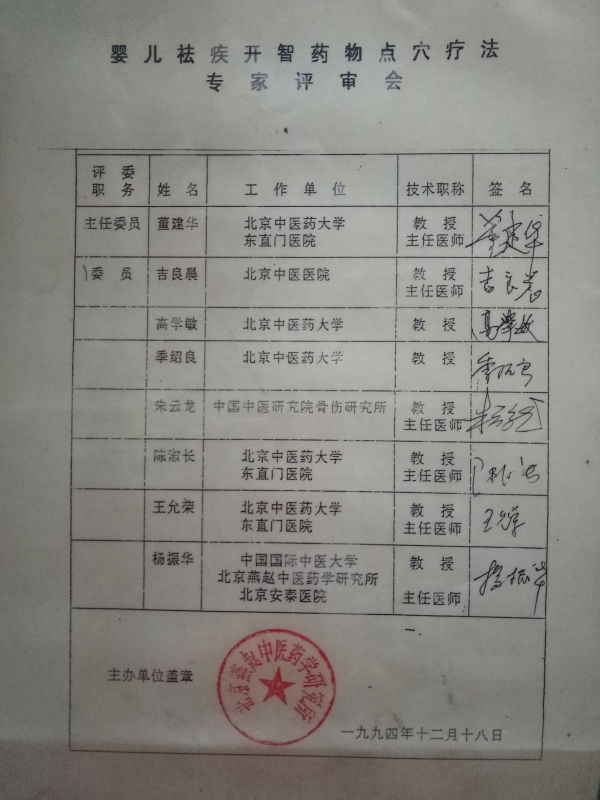 婴儿祛疾开智药物点穴疗法
专家评审会
评委职务 姓名 工作单位 技术职称 签名
主任委员 董建华 北京中医药大学 教授 董建华
东直门医院 主任医师
委员 吉良晨 北京中医医院 教授 吉良晨
主任医师
高学敏 北京中医药大学 教授 高学敏
季绍良 北京中医药大学 教授 季绍良
朱云龙 中国中医研究院骨伤研究所 教授
主任医师
陈淑长 北京中医药大学 教授
东直门医院 主任医师
王允荣 北京中医药大学 教授
东直门医院 主任医师
杨振华 中国国际中医大学 教授 杨振华
北京燕赵中医药学研究所
北京安泰医院 主任医师
主办单位盖章
北京燕赵中医药学研究所
一九九四年十二月十八日